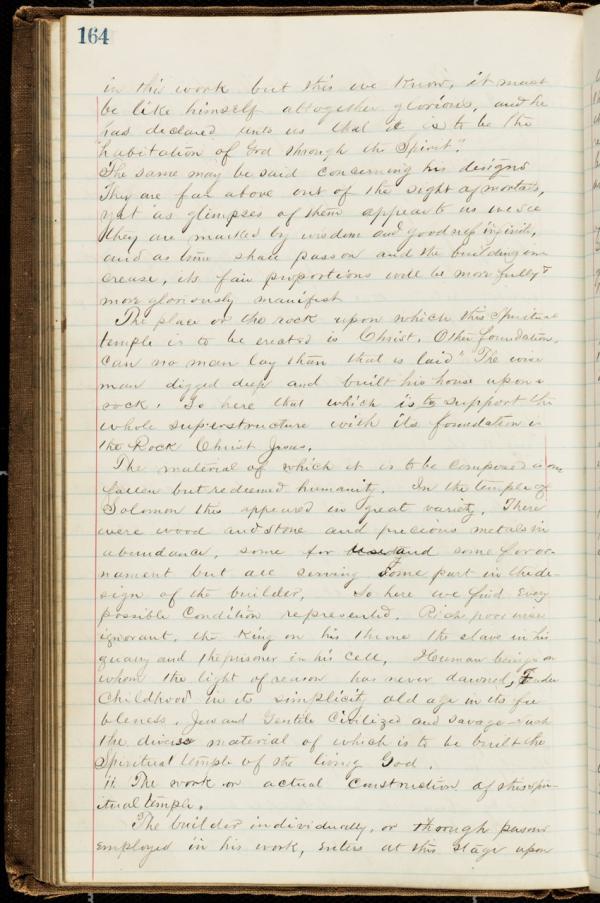 164
in this work but this we know, it must
be like himself altogether glorious, and he
has declared unto us that it is to be the
"habitation of God through the Spirit".
The same may be said concerning his designs
They are far above out of the sight of mortals,
yet as glimpses of them appear to us we see
they are marked by wisdom and goodness infinite,
and as time shall pass on and the building in
crease, its fair proportions will be more fully &
more gloriously manifest
The place or the rock upon which this Spiritual
temple is to be erected is Christ. Other foundation,
can no man lay than that is laid" The wise
man digged deep and built his house upon a
rock. So here that which is to support the
whole superstructure with its foundation is
the Rock Christ Jesus.
The material of which it is to be composed is our
fallen but redeemed humanity. In the temple of
Solomon this appeared in great variety. There
were wood and stone and precious metals in
abundance, some for use and some for or-
nament but all serving some part in the de
sign of the builder. So here we find every
possible Condition represented. Rich poor wise
ignorant. the King on his throne the slave in his
quarry and the prisoner in his cell. Human beings on
whom the light of reason has never dawned, Tender
Childhood in its simplicity old age in its fee
bleness. Jew and Gentile Civilized and savage such
the diverse material of which is to be built the
Spiritual temple of the living God.
11. The work or actual Construction of this spir-
itual temple.
The builder individually, or through persons
employed in his work, enters at this stage upon